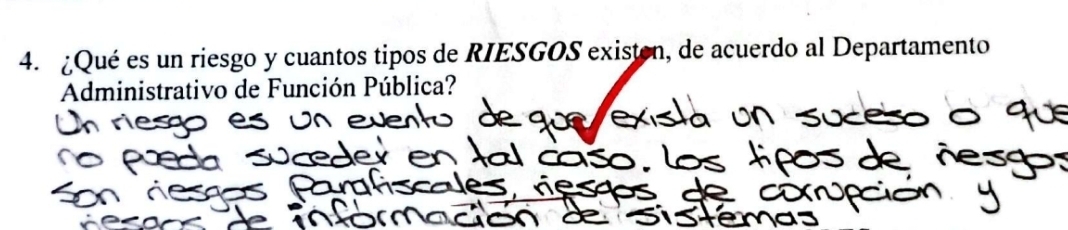 4. ¿Qué es un riesgo y cuantos tipos de RIESGOS existen, de acuerdo al Departamento
Administrativo de Función Pública?
Un riesgo es un evento de que exista un suceso o que
no pueda suceder en tal caso. Los tipos de riesgos
son riesgos parafiscales, riesgos de corrupción y
riesgos de información de sistemas